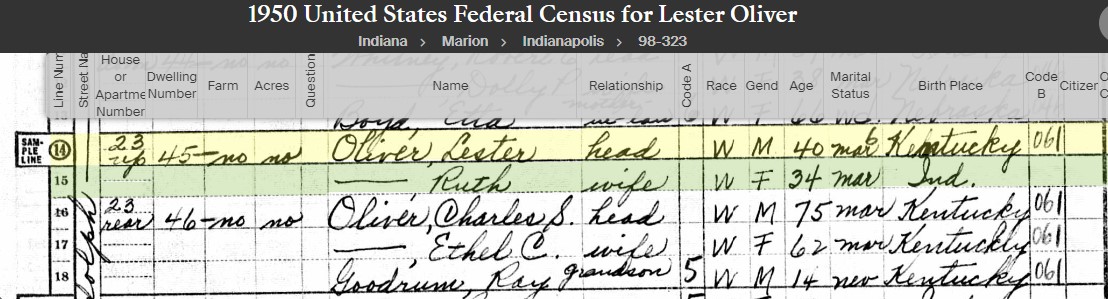 1950 United States Federal Census for Lester Oliver
Indiana > Marion > Indianapolis > 98-323
Line Num Street Na House or Apartme Number Dwelling Number Farm Acres Question Name Relationship Code A Race Gend Age Marital Status Birth Place Code B Citizen
Boyd, Etta
SAMPLE LINE 14 23 up 45 no no Oliver, Lester head W M 40 mar 6 Kentucky 061
15 — Ruth wife W F 34 mar Ind.
16 23 rear 46 no no Oliver, Charles S. head W M 75 mar Kentucky 061
17 — , Ethel C. wife W F 62 mar Kentuckly 061
18 Goodrum, Ray grandson 5 W M 14 nev Kentucky 061